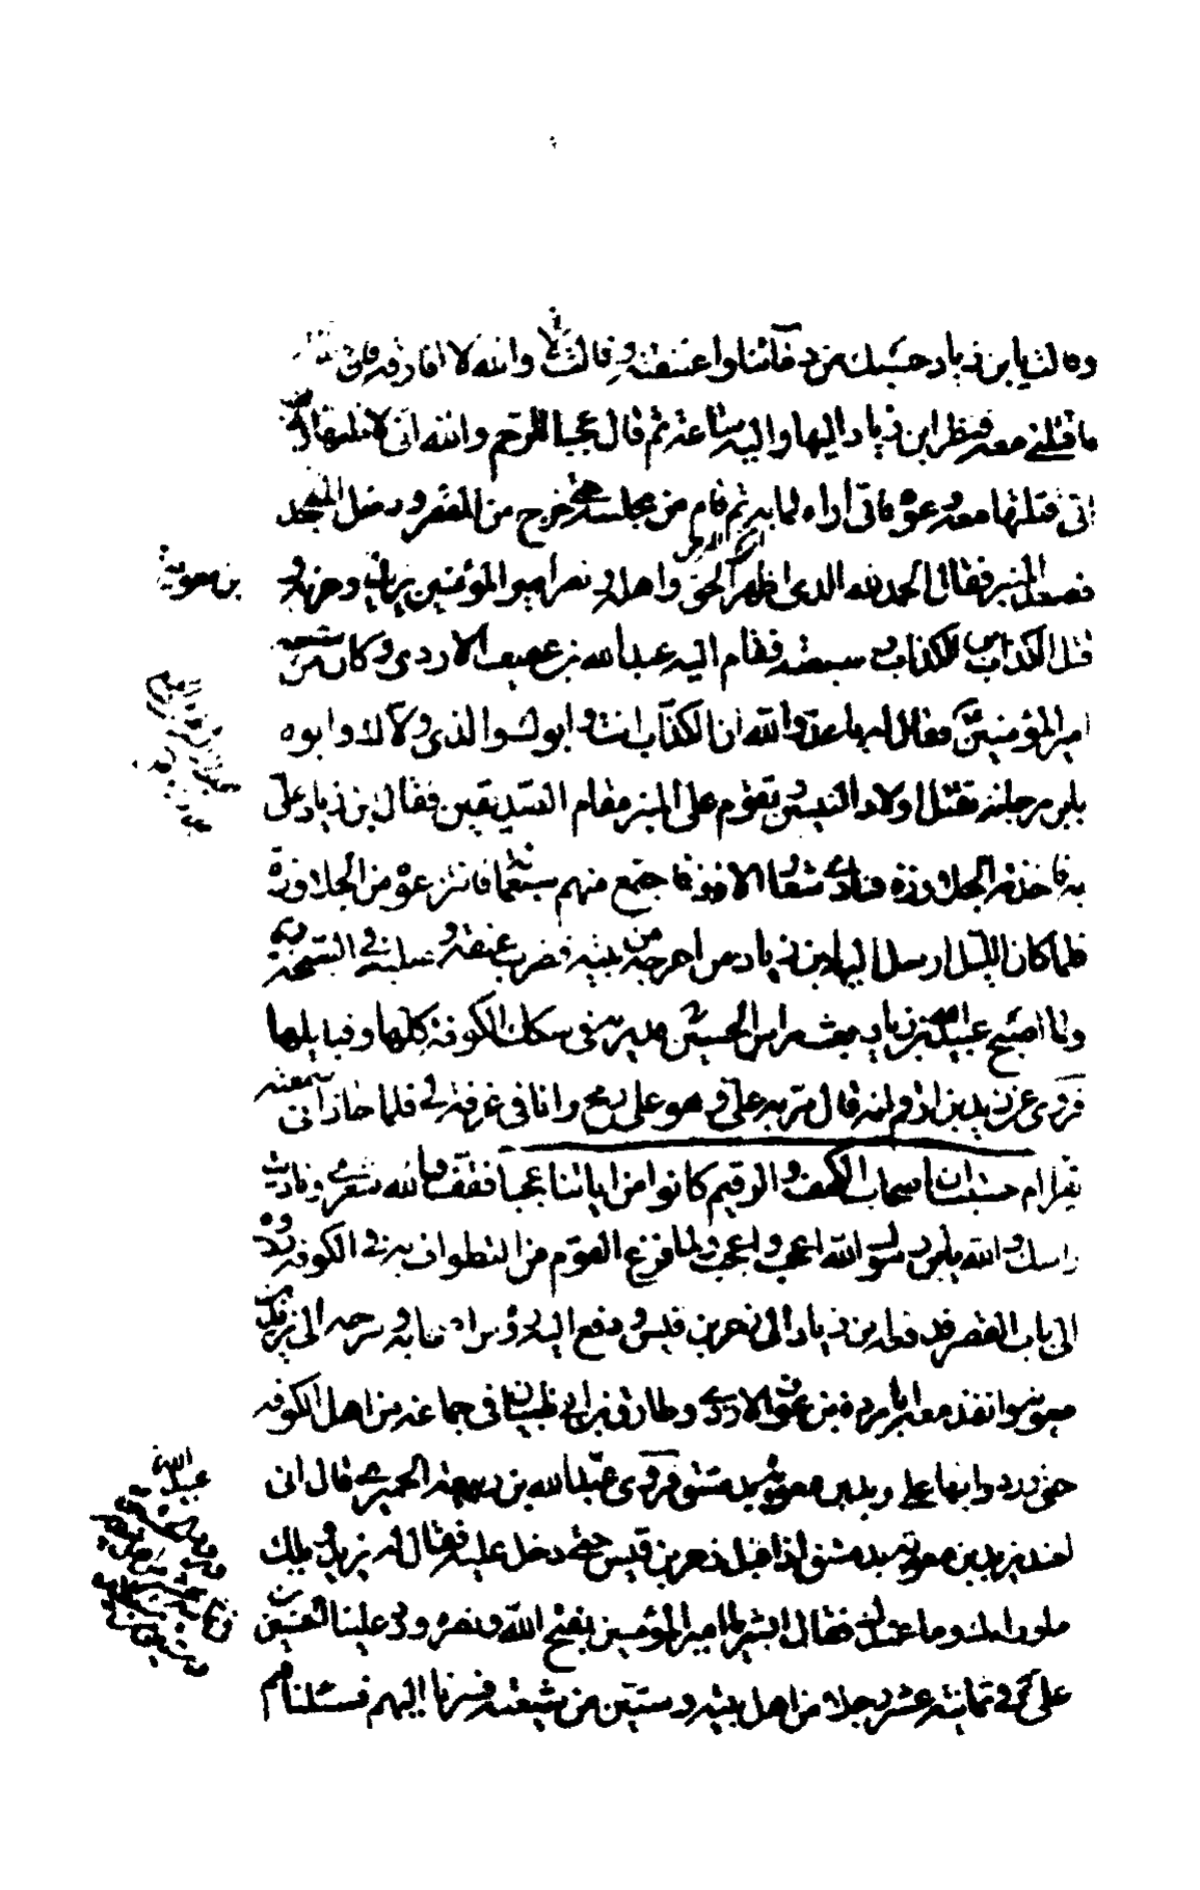 وقالت يا بن زياد حسبك من دمآئنا واعتنقته وقالت لا والله لا افارقه فان
ما قتلني معه فنظر ابن زياد اليها واليه ساعة ثم قال عجبا للرحم والله اني لاظنها ودت
اني قتلتها معه دعوه فاني اراه لما به ثم قام من مجلسه حتى خرج من القصر ودخل المسجد
فصعد المنبر فقال الحمد لله الذي اظهر الحق واهله ونصر امير المؤمنين يزيد وحزبه و
بن معوية
قتل الكذاب بن الكذاب وشيعته فقام اليه عبدالله بن عفيف الازدي وكان من شيعة
امير المؤمنين فقال له يا عدو الله ان الكذاب انت وابوك والذي ولاك وابوه
يابن مرجانة تقتل اولاد النبيين وتقوم على المنبر مقام الصديقين فقال ابن زياد علي
به فاخذته الجلاوزة فنادى شعار الازد فاجتمع منهم سبعمائة فانتزعوه من الجلاوزة
فلما كان الليل ارسل اليه ابن زياد من اخرجه من بيته فضرب عنقه وصلبه في السبخة
ولما اصبح عبيدالله بن زياد بعث براس الحسين فدير به في سكك الكوفة كلها وقبايلها
فروي عن زيد بن ارقم انه قال مر به علي وهو على رمح وانا في غرفة لي فلما حاذاني سمعته
يقرا ام حسبت ان اصحاب الكهف والرقيم كانوا من اياتنا عجبا فقف والله شعري وناديت
راسك والله يابن رسول الله اعجب واعجب ولما فرغ القوم من التطواف به في الكوفة ردوه
الى باب القصر فدفعه ابن زياد الى زحر بن قيس ودفع اليه رؤس اصحابه وسرحه الى يزيد بن
معوية وانفذ معه ابا بردة بن عوف الازدي وطارق بن ابي ظبيان في جماعة من اهل الكوفة
حتى وردوا بها على يزيد بن معوية بدمشق فروى عبدالله بن ربيعة الحميري قال اني
لعند يزيد بن معوية بدمشق اذ اقبل زحر بن قيس حتى دخل عليه فقال له يزيد ويلك
ما وراءك وما عندك فقال ابشر يا امير المؤمنين بفتح الله ونصره ورد علينا الحسين بن
علي في ثمانية عشر رجلا من اهل بيته وستين من شيعته فسرنا اليهم فسئلناهم